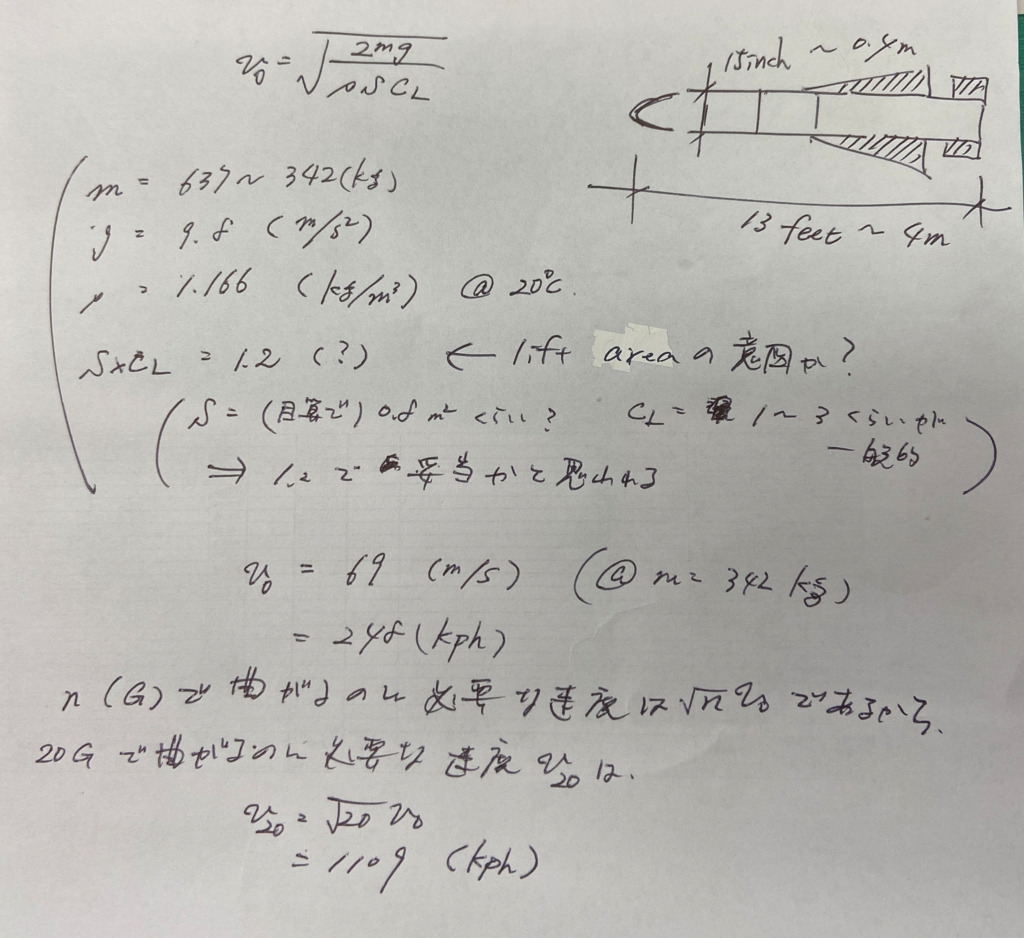 v₀ = √(2mg / ρSC_L)
15inch ~ 0.4m
13 feet ~ 4m
m = 637 ~ 342(kg)
g = 9.8 (m/s²)
ρ = 1.166 (kg/m³) @ 20℃.
S×C_L = 1.2 (?) ← lift areaの意図か?
(S = (目算で) 0.8 m² くらい? C_L = 1 ~ 3 くらいが
一般的)
⇒ 1.2 で 妥当かと思われる
v₀ = 69 (m/s) (@ m = 342 kg)
= 248 (kph)
n (G) で曲がるのに必要な速度は √n v₀ であるから、
20G で曲がるのに必要な速度 v₂₀ は、
v₂₀ = √20 v₀
= 1109 (kph)